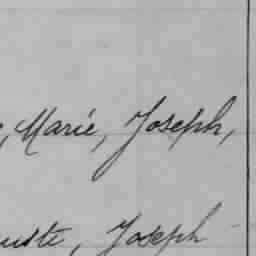 , Marie, Joseph,
uste, Joseph